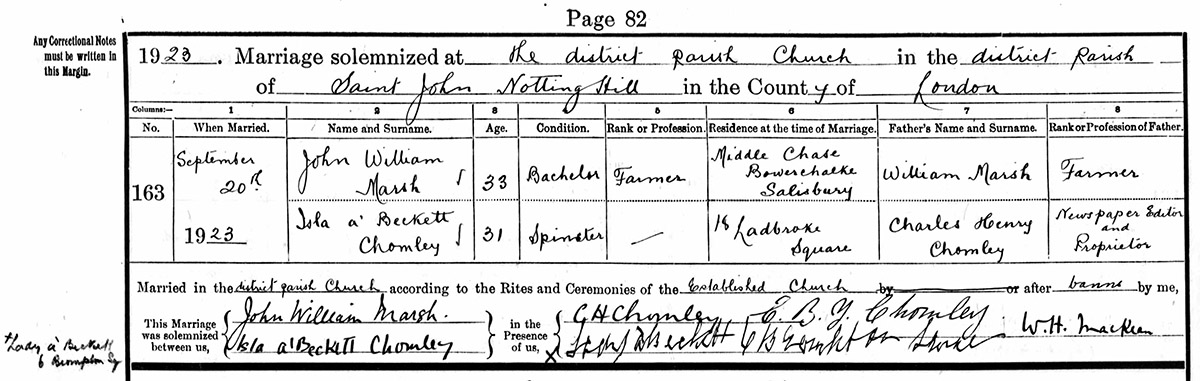 Page 82
Any Correctional Notes
must be written in
this Margin.
1923. Marriage solemnized at the district parish Church in the district parish
of Saint John Notting Hill in the County of London
Columns:— 1 2 3 4 5 6 7 8
No. When Married. Name and Surname. Age. Condition. Rank or Profession. Residence at the time of Marriage. Father's Name and Surname. Rank or Profession of Father.
163
September
20th
1923
John William
Marsh
33
Bachelor
Farmer
Middle Chase
Bowerchalke
Salisbury
William Marsh
Farmer
Isla a' Beckett
Chomley
31
Spinster
—
18 Ladbroke
Square
Charles Henry
Chomley
Newspaper Editor
and
Proprietor
Married in the district parish Church according to the Rites and Ceremonies of the Established Church by or after banns by me,
This Marriage
was solemnized
between us,
John William Marsh.
Isla a'Beckett Chomley
in the
Presence
of us,
C H Chomley E. B. Y. Chomley
X a'Beckett 6 Brompton
W. H.
Lady a' Beckett
6 Brompton Sq